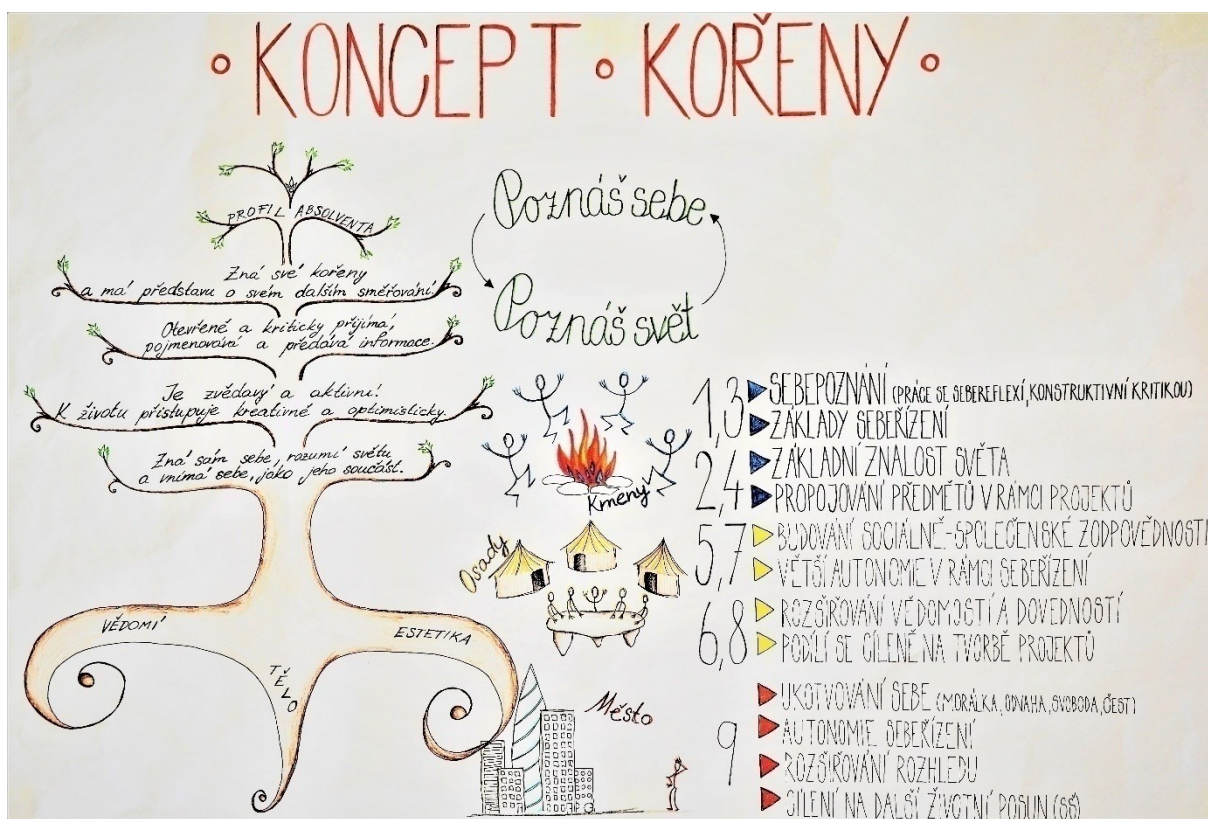 • KONCEPT • KOŘENY •
PROFIL ABSOLVENTA
Zná své kořeny
a má představu o svém dalším směřování.
Otevřeně a kriticky přijímá,
pojmenovává a předává informace.
Je zvědavý a aktivní.
K životu přistupuje kreativně a optimisticky.
Zná sám sebe, rozumí světu
a vnímá sebe, jako jeho součást.
VĚDOMÍ
TĚLO
ESTETIKA
Poznáš sebe
Poznáš svět
Kmeny
Osady
Město
1,3
SEBEPOZNÁNÍ (PRÁCE SE SEBEREFLEXÍ, KONSTRUKTIVNÍ KRITIKOU)
ZÁKLADY SEBEŘÍZENÍ
2,4
ZÁKLADNÍ ZNALOST SVĚTA
PROPOJOVÁNÍ PŘEDMĚTŮ V RÁMCI PROJEKTŮ
5,7
BUDOVÁNÍ SOCIÁLNĚ-SPOLEČENSKÉ ZODPOVĚDNOSTI
VĚTŠÍ AUTONOMIE V RÁMCI SEBEŘÍZENÍ
6,8
ROZŠIŘOVÁNÍ VĚDOMOSTÍ A DOVEDNOSTÍ
PODÍLÍ SE CÍLENĚ NA TVORBĚ PROJEKTŮ
9
UKOTVOVÁNÍ SEBE (MORÁLKA, ODVAHA, SVOBODA, ČEST)
AUTONOMIE SEBEŘÍZENÍ
ROZŠIŘOVÁNÍ ROZHLEDU
CÍLENÍ NA DALŠÍ ŽIVOTNÍ POSUN (SŠ)